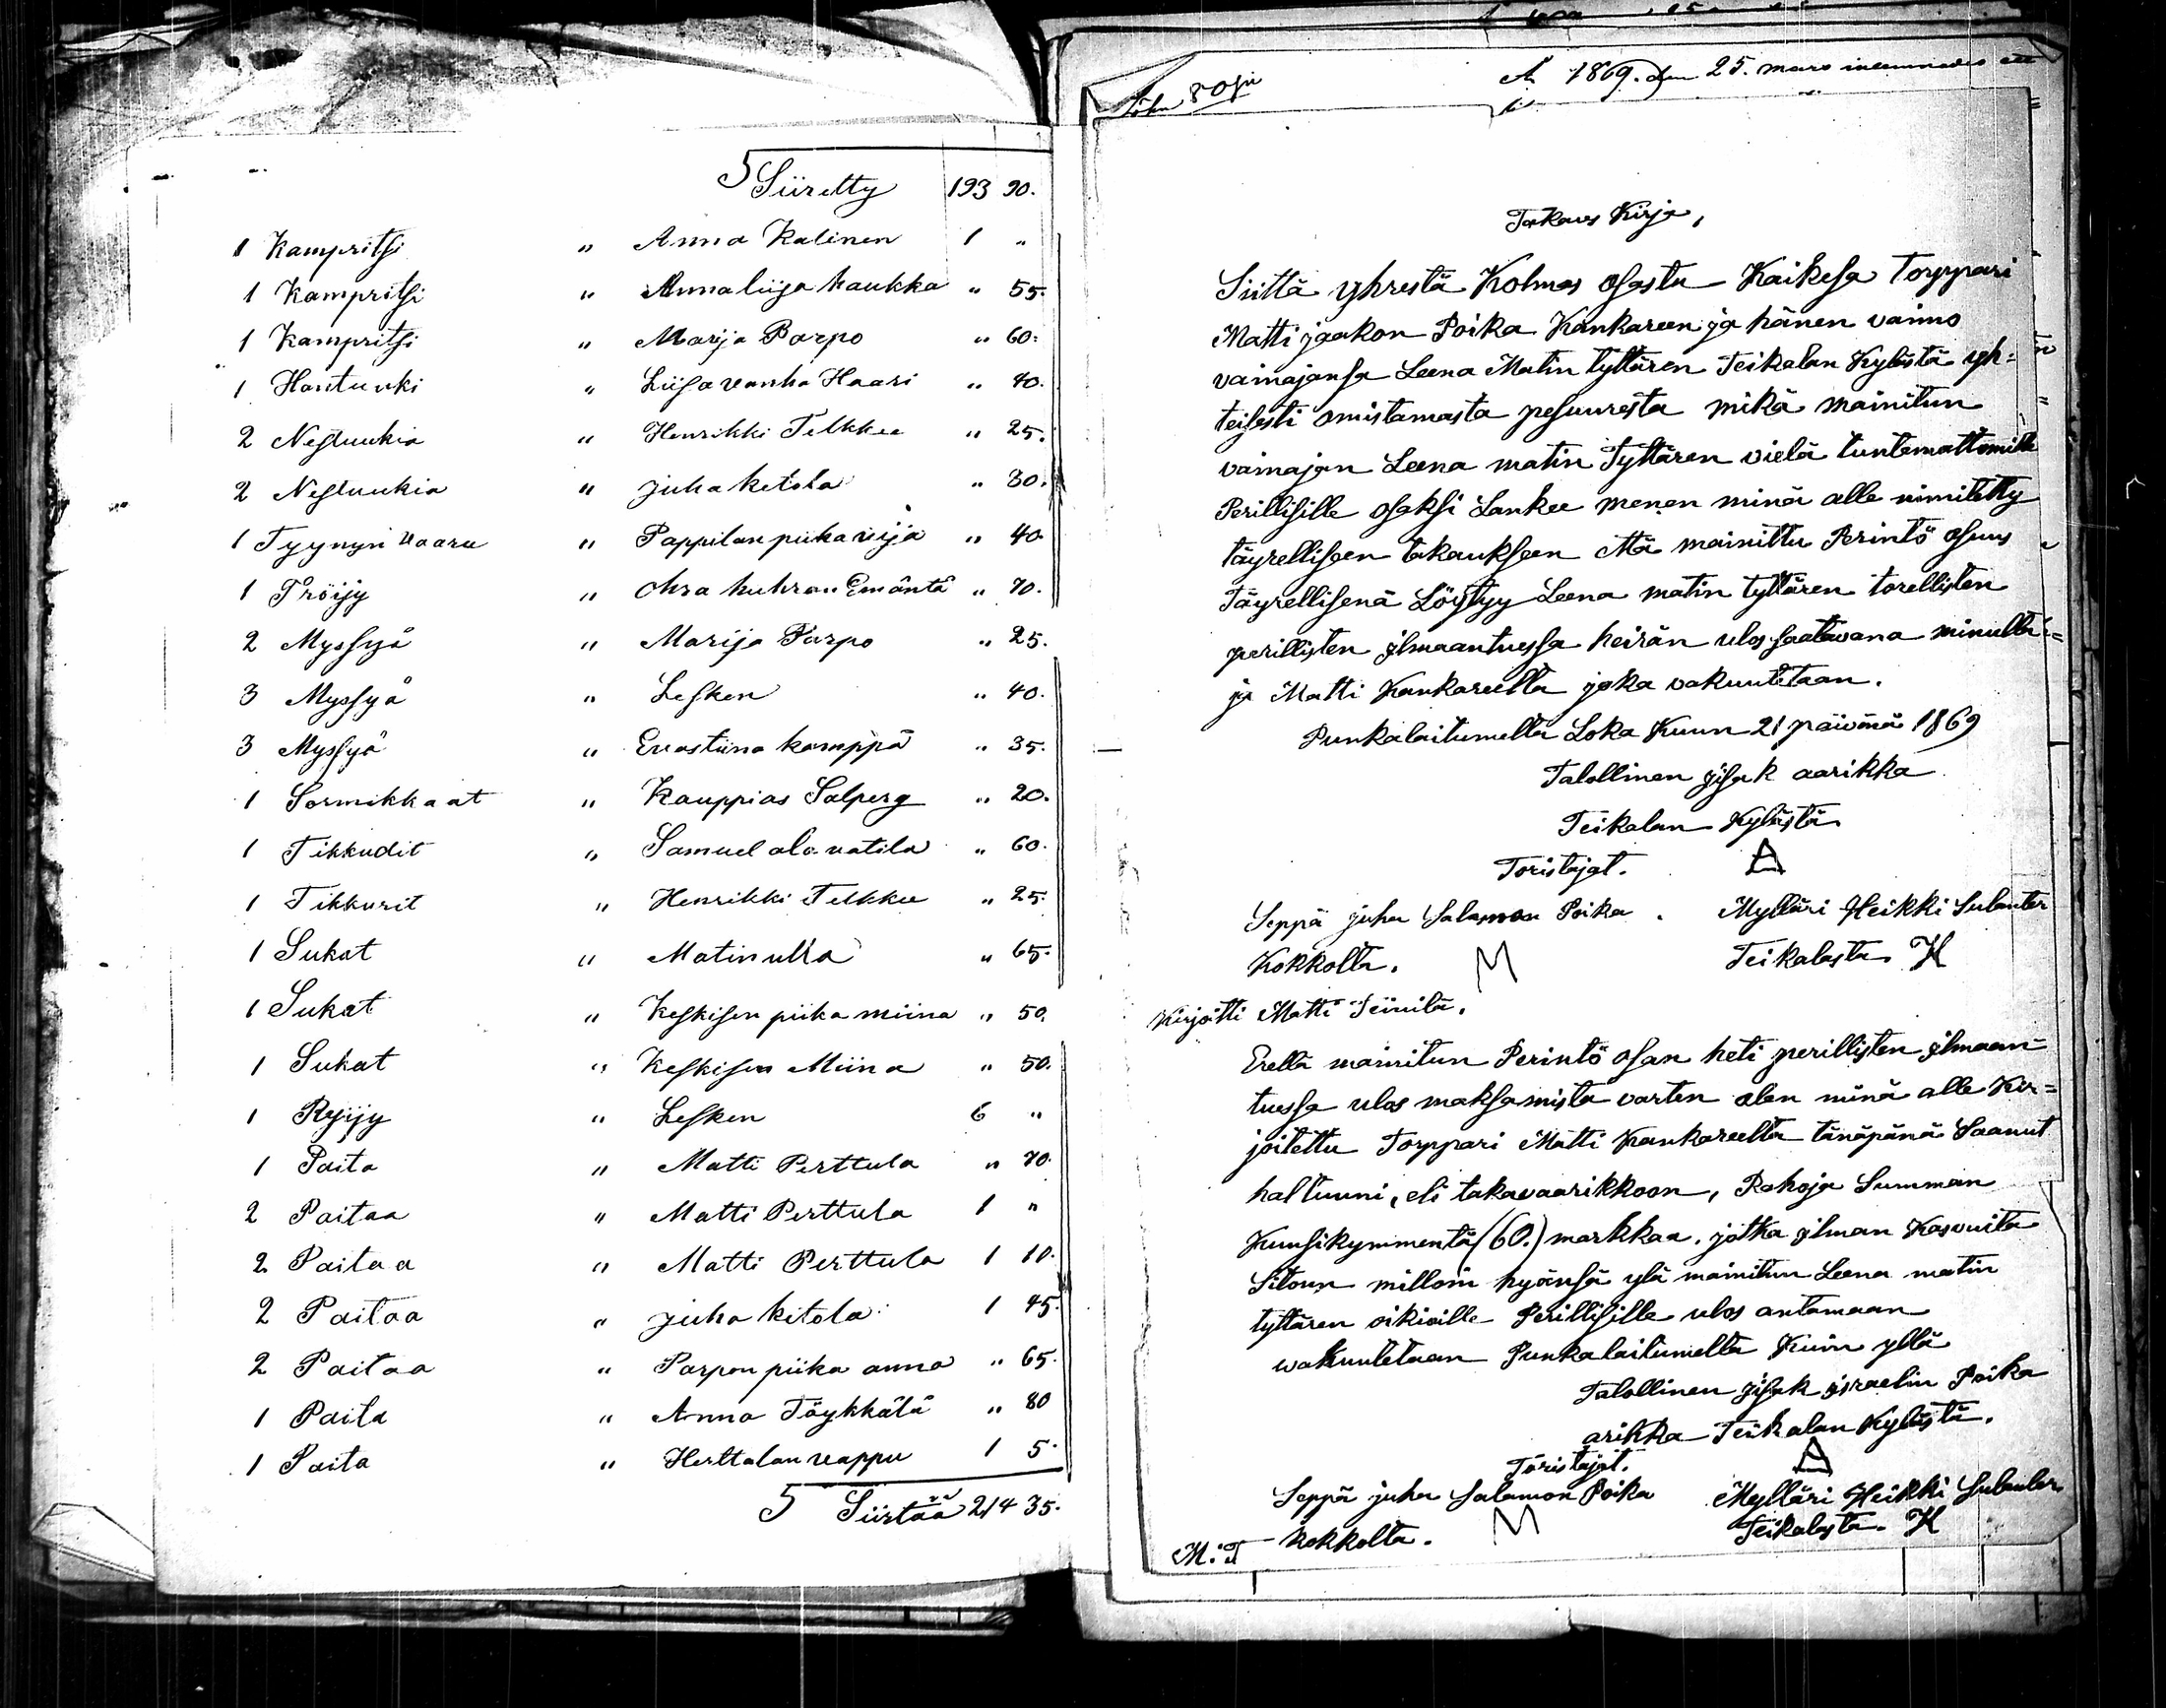 5 Siiretty 193 90.
1 Kampritsi " Anna Kalinen 1 "
1 Kampritsi " Annaliisa haukka " 55.
1 Kampritsi " Marija Parpo " 60.
1 Hantuuki " Liisa vanha Haari " 40.
2 Nestuukia " Henrikki Telkkee " 25.
2 Nestuukia " juha ketola " 30.
1 Tyynyn vaaru " Pappilan piika " 40.
1 Tröijy " huhran Emäntä " 70.
2 Myssyä " Marija Parpo " 25.
3 Myssyä " Lesken " 40.
3 Myssyä " Evastiina kamppä " 35.
1 Sormikkaat " Kauppias Salperg " 20.
1 Tikkudit " Samuel ala vatila " 60.
1 Tikkurit " Henrikki Telkkee " 25.
1 Sukat " Matin ulla " 65.
1 Sukat " Keskisen piika miina " 50.
1 Sukat " Keskisen Miina " 50.
1 Ryijy " Lesken 6 "
1 Paita " Matti Perttula " 70.
2 Paitaa " Matti Perttula 1 "
2 Paitaa " Matti Perttula 1 10.
2 Paitaa " juha ketola 1 45.
2 Paitaa " Parpon piika anna " 65.
1 Paita " Anna Töykkälä " 80
1 Paita " Herttalan vappu 1 5.
5 Siirtää 214 35.
1869. den 25. mars
Takaus Kirja,
Siittä yhrestä Kolmas osasta Kaikesa Torppari
Matti jaakon Poika Kankareen ja hänen vaimo
vainajansa Leena Matin tyttären Teikalan Kylästä yh=
teisesti omistamasta pesuuresta mikä mainitun
vainajan Leena matin Tyttären vielä tuntemattomille
Perillisille osaksi Lankee menen minä alle nimitetty
täyrelliseen takaukseen että mainittu Perintö osuus
Täyrellisenä Löytyy Leena matin tyttären torellisten
perillisten ilmaantuessa heirän ulos saatavana minulta
ja Matti Kankareella joka vakuutetaan.
Punkalaitumella Loka Kuun 21 päivänä 1869
Talollinen jisak aarikka
Teikalan Kylästä
Toristajat. A
Seppä juha Salamon Poika. Mylläri Heikki Sulanter
Kokkolta. M Teikalasta H
Kirjoitti Matti Seinilä.
Erellä mainitun Perintö osan heti perillisten ilmaan
tuessa ulos maksamista varten olen minä alle Kir=
joitettu Torppari Matti Kankareelta tänäpänä Saanut
haltuuni, eli takavaarikkoon, Rahoja Summan
Kuusikymmentä (60.) markkaa, jotka ilman Kasvuita
Sitoun milloin hyänsä ylä mainitun Leena matin
tyttären oikioille Perillisille ulos antamaan
wakuutetaan Punkalaitumella Kuin yllä
Talollinen jisak jsraelin Poika
arikka Teikalan Kylästä.
Toristajat. A
Seppä juha Salamon Poika Mylläri Heikki Sulanter
kokkolta. M Teikalasta. H
M: T